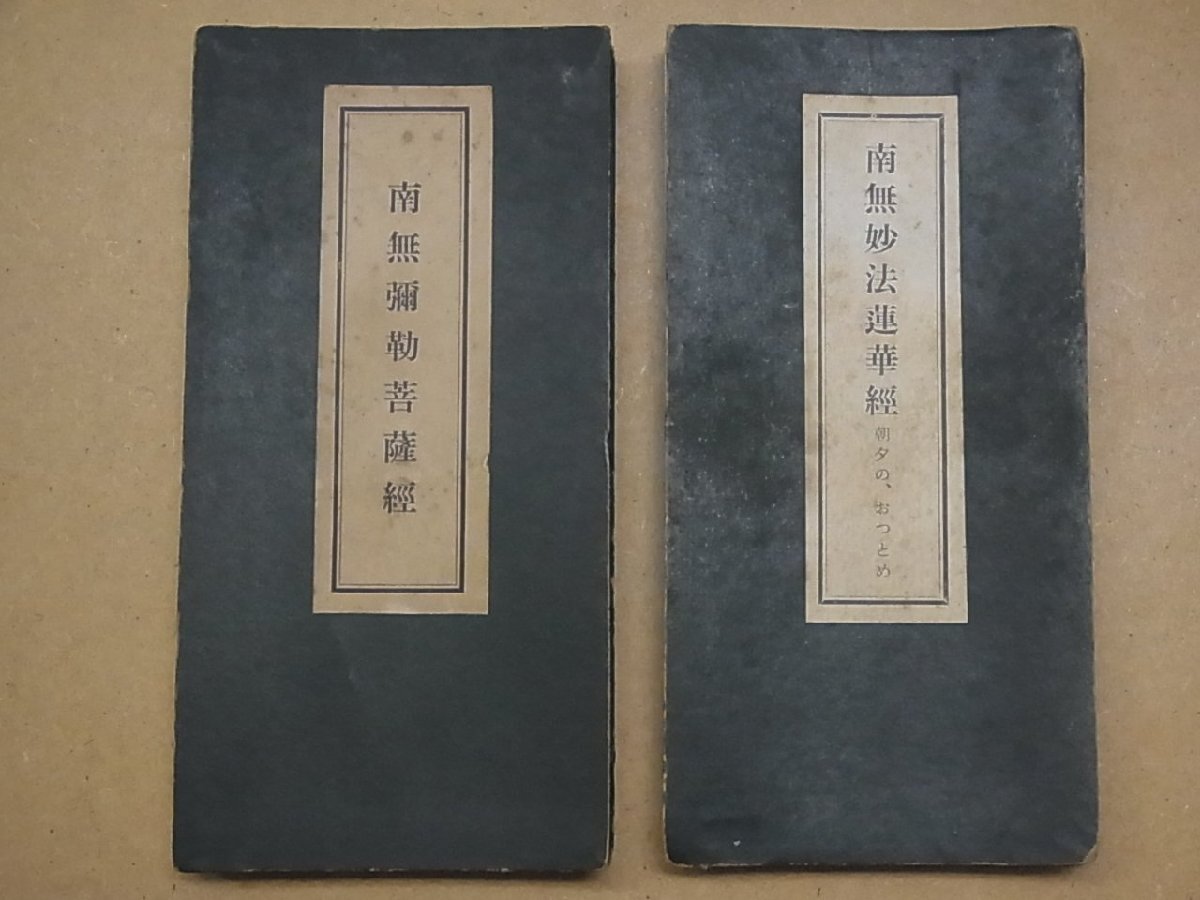 南無彌勒菩薩經
南無妙法蓮華經 朝夕の、おつとめ